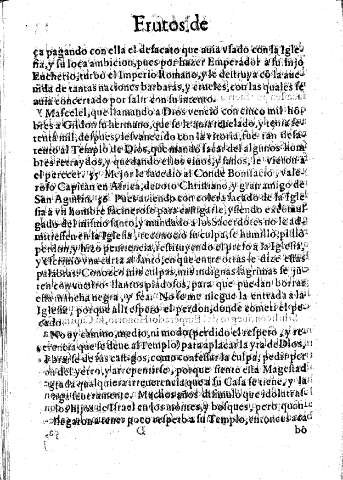 Frutos, de
ça pagando con ella el desacato que auia vsado con la Igle-
sia, y su loca ambicion, pues por hazer Emperador a su hijo
Eucherio, turbò el Imperio Romano, y le destruyò cō la aue-
nida de tantas naciones barbaras, y crueles, con las quales se
auia concertado por salir con su intento.
Mascelel, que llamando a Dios venciò con cinco mil hō-
bres a Gildon su hermano, que se le auia rebelado, y tenia se-
tenta mil, despues, desvanecido con la vitoria, fue tan desa-
tento al Templo de Dios, que mandò sacar del algunos hom
bres retraydos, y quedando ellos viuos, y sanos, le vieron a
el perecer. 55 Mejor le sucediò al Conde Bonifacio, vale-
roso Capitan en Africa, deuoto Christiano, y gran amigo de
San Agustin. 56 Pues auiendo con colera sacado de la Igle
sia a vn hombre facineroso para castigarle, y siendo excomul
gado del mismo santo, y mandado a los Sacerdotes no le ad-
mitiessen en la Iglesia, reconociò su culpa, se humillò, pidiò
perdon, y hizo penitencia, restituyendo el preso a la Iglesia,
y escriuiò vna carta al santo, en que entre otras le dize estas
palabras. Conozco mis culpas, mis indignas lagrimas se jun-
ten con vuestros llantos piadosos, para que puedan borrar
esta mancha negra, y fea. No se me niegue la entrada a la
Iglesia, porque alli espero el perdon, donde cometi el pe-
cado.
No ay camino, medio, ni modo (perdido el respeto, y re-
uerencia que se deue al Templo) para aplacar la yra de Dios,
librarse de sus castigos, como confessar la culpa, pedir per-
don del yerro, y arrepentirse, porque siente esta Magestad
grada qualquiera irreuerencia que a su Casa se tiene, y la
seueramente. Muchos años dissimulò que idolatras-
los hijos de Israel en los montes, y bosques, pero quan-
llegaron a tener poco respeto a su Templo, entonces
D
bo